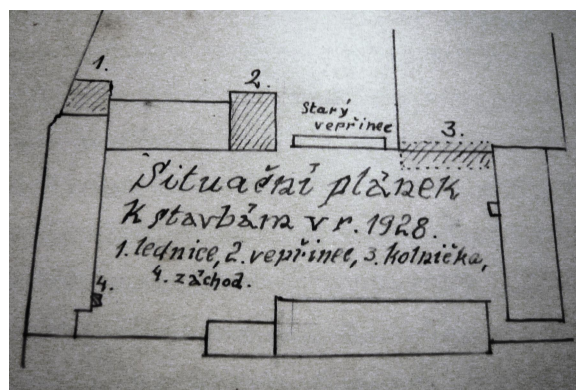 1.
2.
Starý
vepřinec
3.
Situační plánek
K stavbám v r. 1928.
1. lednice, 2. vepřinec, 3. kolnička,
4. záchod.
4.